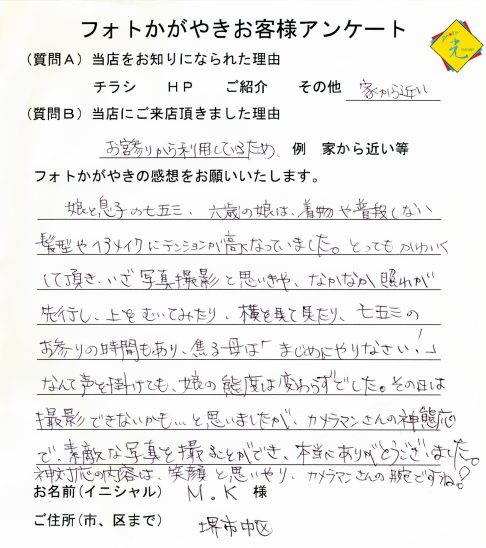 フォトかがやきお客様アンケート
(質問A)当店をお知りになられた理由
チラシ HP ご紹介 その他 家から近い
(質問B)当店にご来店頂きました理由
お宮参りから利用しているため、 例 家から近い等
フォトかがやきの感想をお願いいたします。
娘と息子の七五三、六歳の娘は、着物や普段しない
髪型やヘアメイクにテンションが高くなっていました。とってもかわいく
して頂き、いざ写真撮影と思いきや、なかなか照れが
先行し、上をむいてみたり、横を見て見たり、七五三の
お参りの時間もあり、焦る母は「まじめにやりなさい!」
なんて声を掛けても、娘の態度は変わらずでした。その日は
撮影できないかも…と思いましたが、カメラマンさんの神態応
で、素敵な写真を撮ることができ、本当にありがとうございました。
神対応の内容は、笑顔と思いやり、カメラマンさんの腕ですね?
お名前(イニシャル) M.K 様
ご住所(市、区まで) 堺市中区